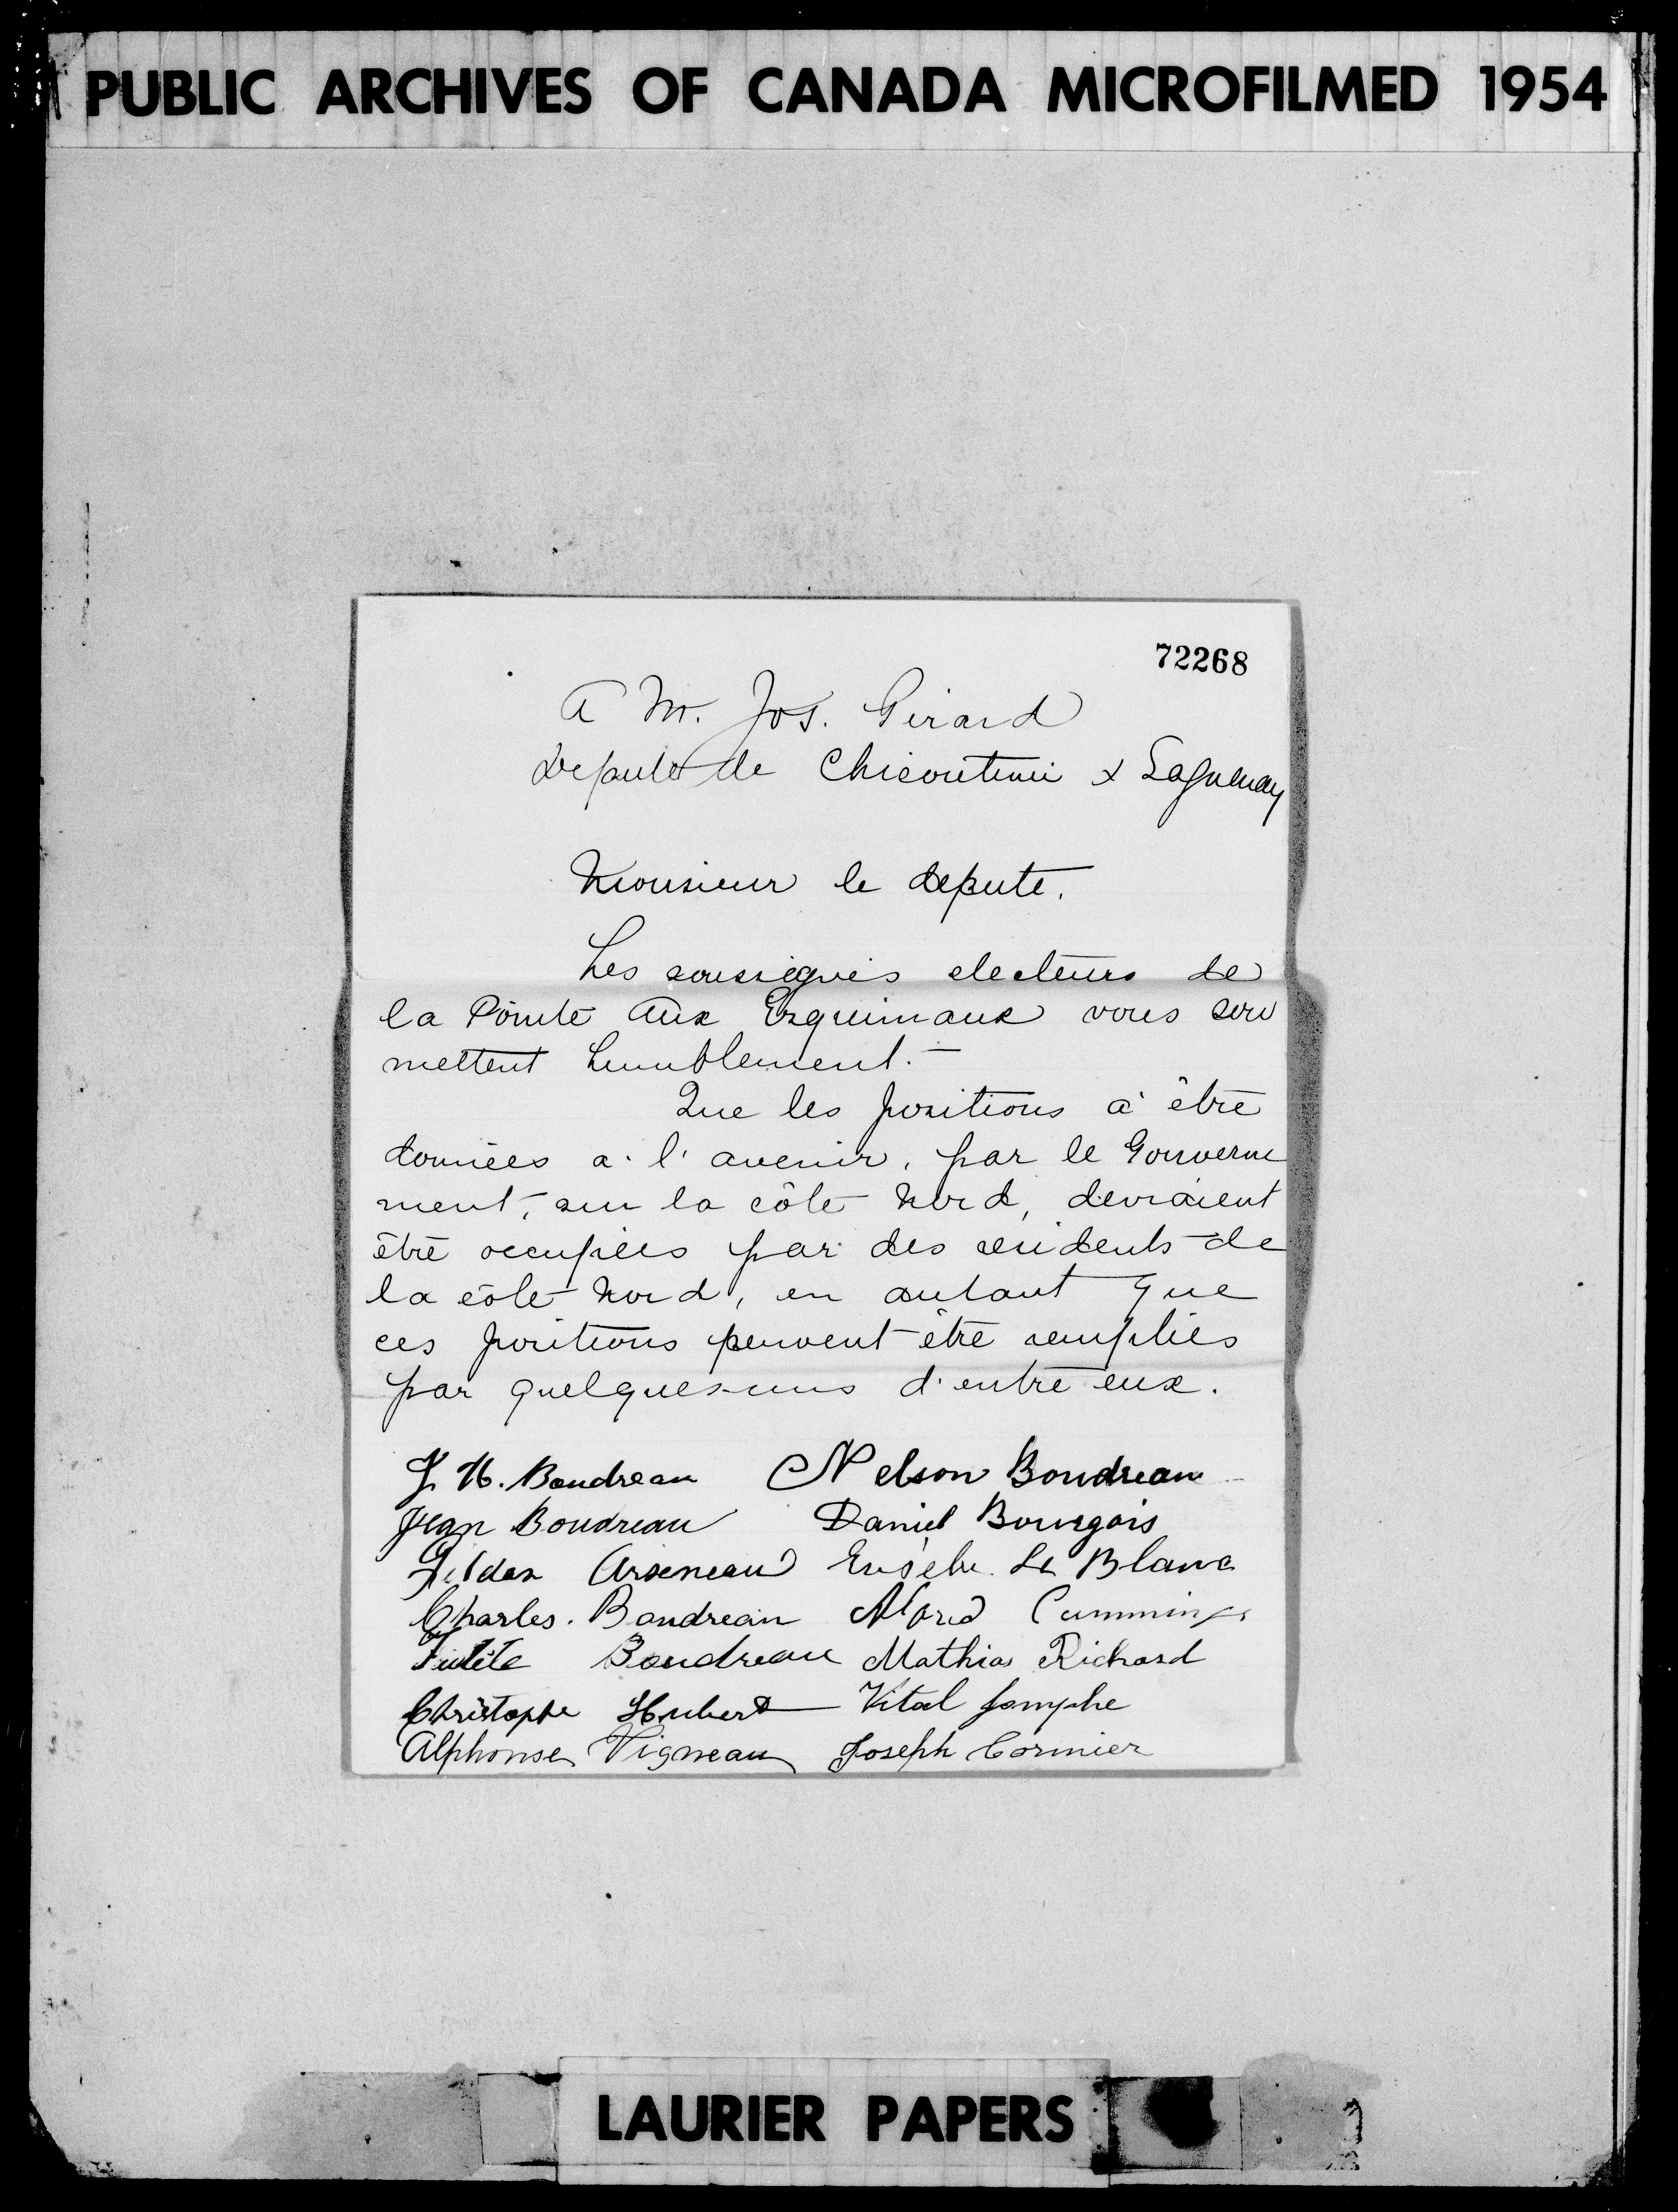 PUBLIC ARCHIVES OF CANADA MICROFILMED 1954
72268
A M. Jos. Girard
Députe de Chicoutimi & Saguenay
Monsieur le depute.
Les soussignés electeurs de
la Pointe Aux Esquimaux vous sou
mettent humblement.-
Que les positions à être
données a l'avenir, par le Gouverne
ment, sur la côte Nord, devraient
être occupées par des residents de
la côte Nord, en autant que
ces positions peuvent être remplies
par quelques-uns d'entre eux.
J. H. Boudreau Nelson Boudreau
Jean Boudreau Daniel Bourgois
Arseneau Eusèbe Le Blanc
Charles. Boudreau Cummings
Boudreau Mathias Richard
Christophe Hubert Vital Jomphe
Alphonse Vigneau Joseph Cormier
LAURIER PAPERS